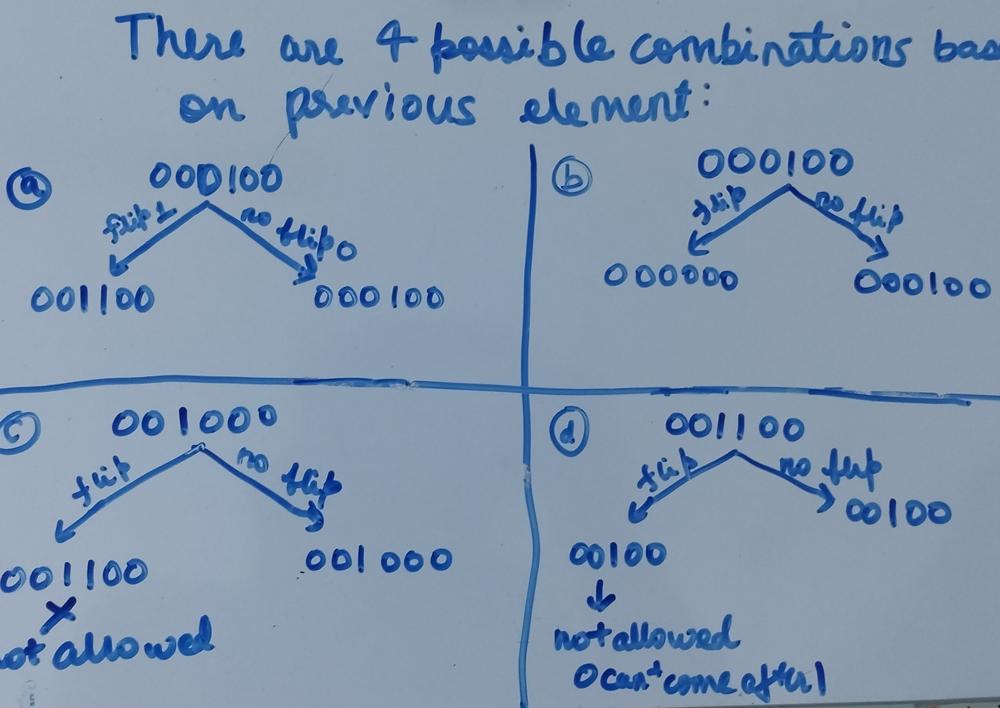 There are 4 possible combinations bas
on previous element:
a
000100
flip 1
no flip 0
001100
000100
b
000100
flip
no flip
000000
000100
c
001000
flip
no flip
001100
001000
X
not allowed
d
001100
flip
no flip
00100
00100
not allowed
0 can't come after 1